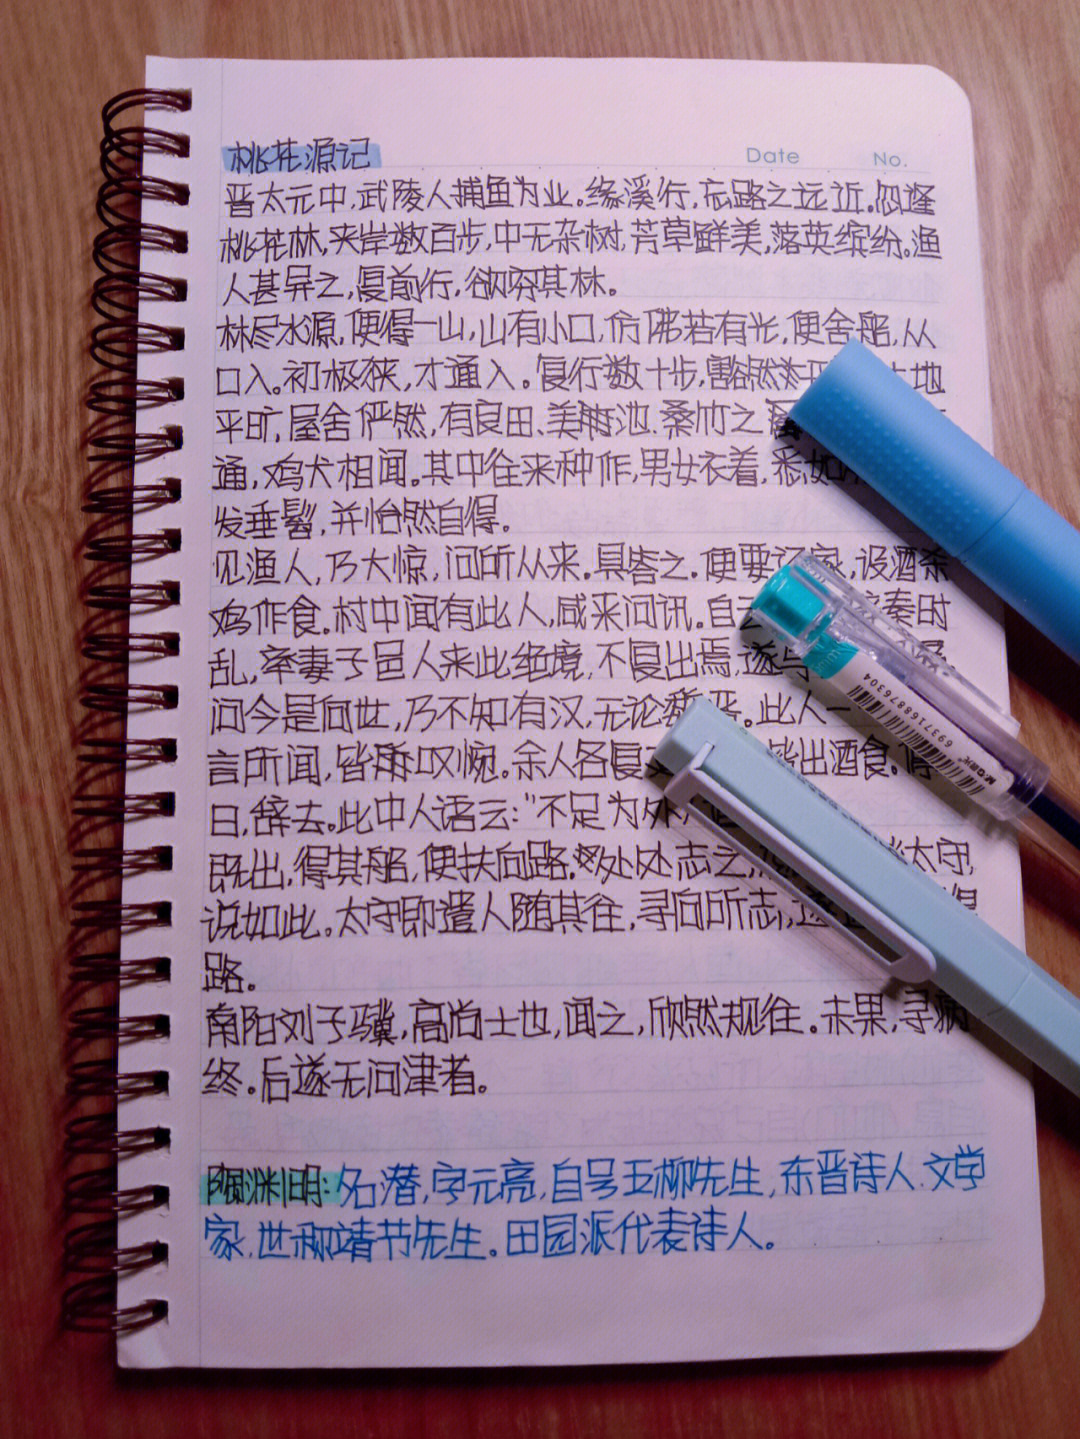 桃花源记
Date No.
晋太元中,武陵人捕鱼为业。缘溪行,忘路之远近。忽逢
桃花林,夹岸数百步,中无杂树,芳草鲜美,落英缤纷。渔
人甚异之,复前行,欲穷其林。
林尽水源,便得一山,山有小口,仿佛若有光,便舍船,从
口入。初极狭,才通人。复行数十步,豁然 土地
平旷,屋舍俨然,有良田、美池、桑竹之
通,鸡犬相闻。其中往来种作,男女衣着,悉如
发垂髫,并怡然自得。
见渔人,乃大惊,问所从来。具答之。便要还家,设酒杀
鸡作食。村中闻有此人,咸来问讯。自云 秦时
乱,率妻子邑人来此绝境,不复出焉,遂与
问今是何世,乃不知有汉,无论魏晋。此人一
言所闻,皆叹惋。余人各复 皆出酒食。停
日,辞去。此中人语云:“不足为外
既出,得其船,便扶向路,处处志之, 太守,
说如此。太守即遣人随其往,寻向所志,遂 得
路。
南阳刘子骥,高尚士也,闻之,欣然规往。未果,寻病
终。后遂无问津者。
陶渊明:名潜,字元亮,自号五柳先生,东晋诗人.文学
家,世称靖节先生。田园派代表诗人。
6937768876304